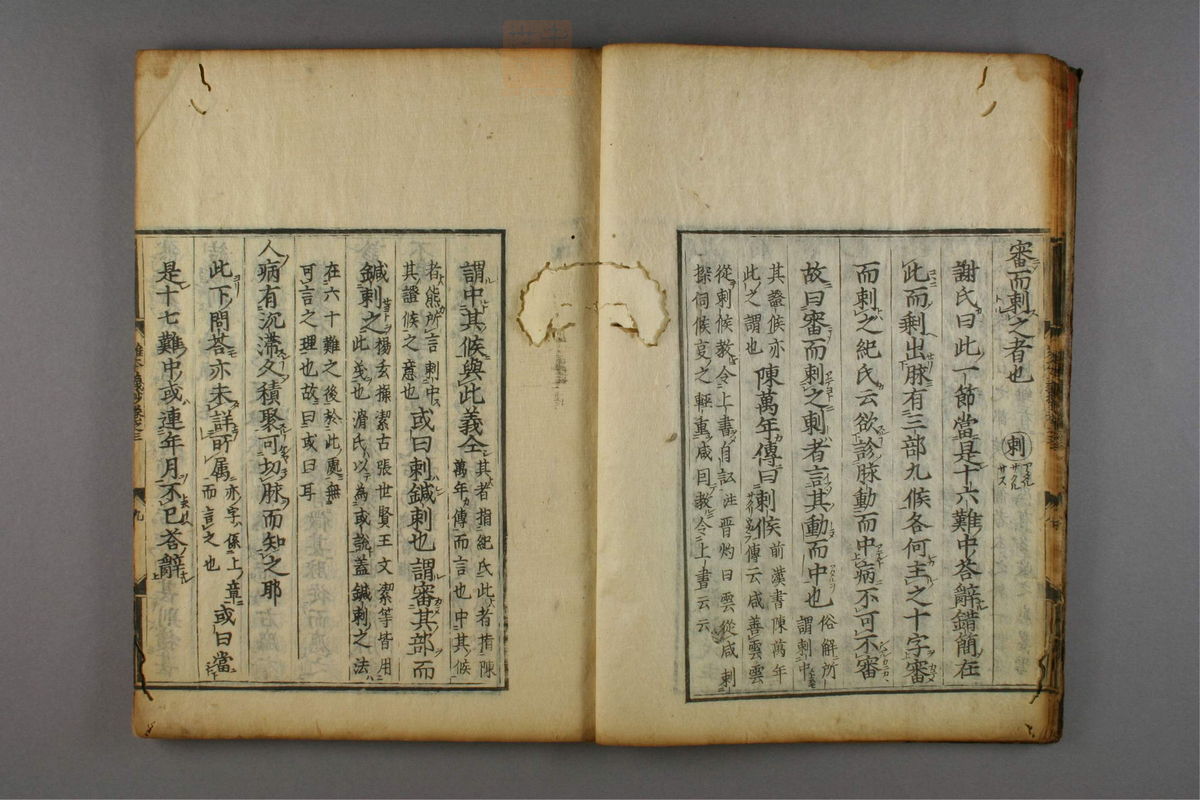 審而刺之者也 刺
謝氏曰此一節當是十六難中荅辭錯簡在
此而剩出脉有三部九候各何主之十字審
而刺之紀氏云欲診脉動而中病不可不審
故曰審而刺之刺者言其動而中也 俗解所
謂刺中
其證候亦
此之謂也 陳萬年傳曰刺候 前漢書陳萬年
傳云咸善雲雲
從刺候教令上書自訟注晉灼曰雲從咸刺
探伺候㕝之輕重咸因教令上書云云
謂中其候與此義仝 其者指紀氏此者指陳
萬年傳而言也中其候
者熊所言刺中
其證候之意也 或曰刺鍼刺也謂審其部而
鍼刺之 楊玄操潔古張世賢王文潔等皆用
此義也滑氏以為或說蓋鍼刺之法
在六十難之後於此處無
可言之理也故曰或曰耳
人病有沉滯久積聚可切脉而知之耶
此下問荅亦未詳所属 亦字係上章
而言之也 或曰當
是十七難中或連年月不已荅辭